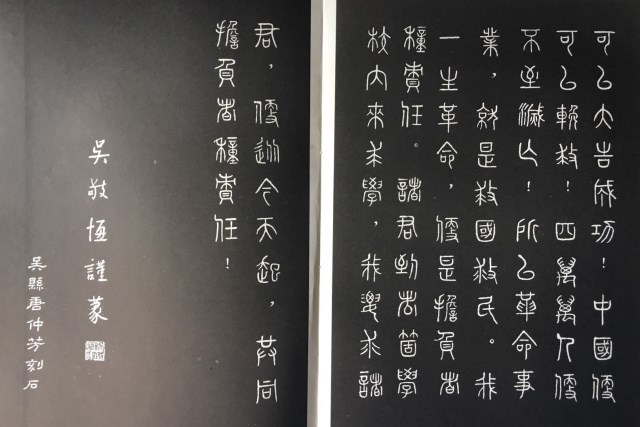 可以大告成功！中國便
可以輓救！四萬萬人便
不至滅亡！所以革命事
業，就是救國救民。我
一生革命，便是擔負者
種責任。諸君到者箇學
校內來求學，我要求諸
君，便從今天起，共同
擔負者種責任！
吳敬恆謹篆
吳縣唐仲芳刻石